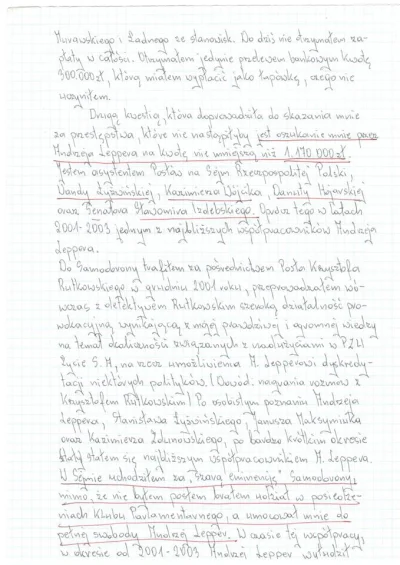 Murawskiego i żadnego ze stanowisk. Do dziś nie otrzymałem za-
płaty w całości. Otrzymałem jedynie przelewem bankowym kwotę
300.000 zł, którą miałem wypłacić jako łapówkę, czego nie
uczyniłem.
Drugą kwestią, która doprowadziła do skazania mnie
za przestępstwa, które nie nastąpiłyby jest oszukanie mnie przez
Andrzeja Leppera na kwotę nie mniejszą niż 1.170 000 zł.
Jestem asystentem Posłów na Sejm Rzeczpospolitej Polski,
Wandy Łyżwińskiej, Kazimierza Wójcika, Danuty Hojarskiej
oraz Senatora Sławomira Izdebskiego. Oprócz tego w latach
2001-2003 jednym z najbliższych współpracowników Andrzeja
Leppera.
Do Samoobrony trafiłem za pośrednictwem Posła Krzysztofa
Rutkowskiego w grudniu 2001 roku, przeprowadzałem wów-
czas z detektywem Rutkowskim szeroką działalność pro-
wokacyjną wynikającą z mojej prawdziwej i ogromnej wiedzy
na temat okoliczności związanych z nadużyciami w PZU
Życie S.A, na rzecz umożliwienia A. Lepperowi dyskredy-
tacji niektórych polityków. (Dowód, nagrania rozmów z
Krzysztofem Rutkowskim) Po osobistym poznaniu Andrzeja
Leppera, Stanisława Łyżwińskiego, Janusza Maksymiuka
oraz Kazimierza Zdunowskiego, po bardzo krótkim okresie
stałem się najbliższym współpracownikiem A. Leppera.
W Sejmie uchodziłem za "szarą eminencję" Samoobrony,
mimo, że nie byłem posłem brałem udział w posiedze-
niach Klubu Parlamentarnego, a umocował mnie do
pełnej swobody Andrzej Lepper. W czasie tej współpracy,
w okresie od 2001-2003 Andrzej Lepper wyłudził